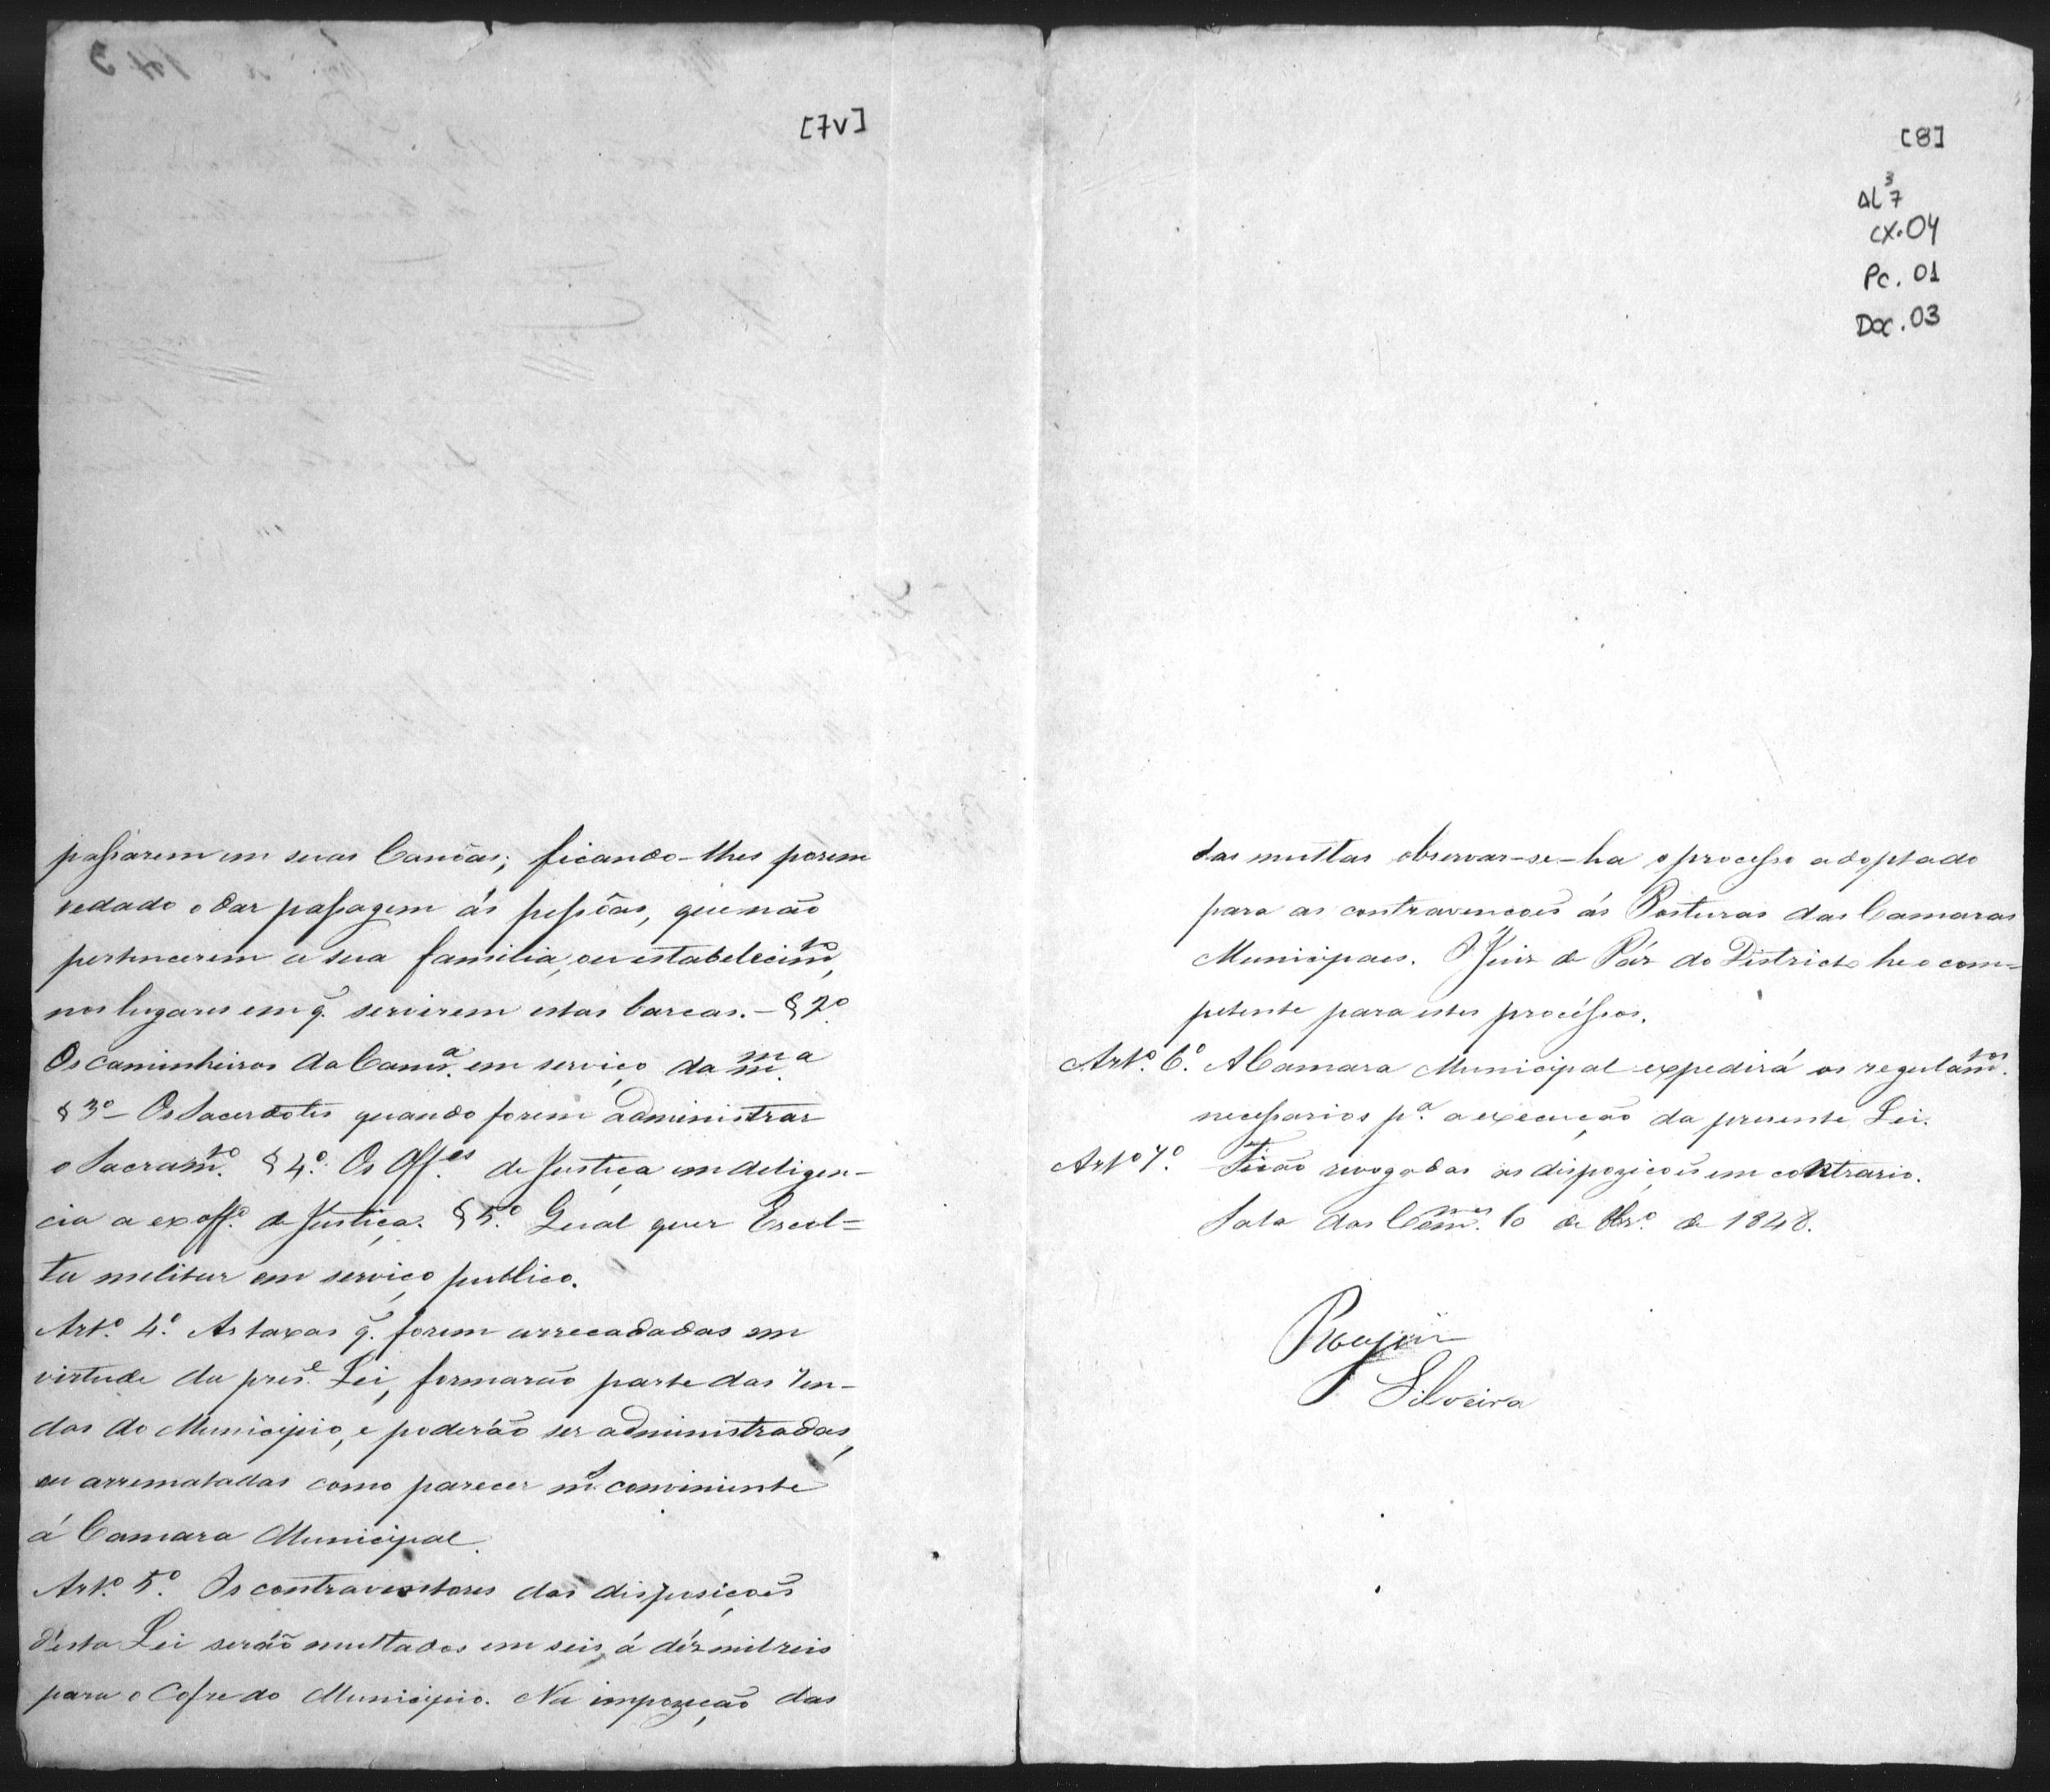 [7v]
passarem em suas Canôas; ficando-lhes porem
vedado o dar passagem ás pessôas, que não
pertencerem a sua familia, ou estabelecimto,
nos lugares em q̃. servirem estas barcas. – § 2º.
Os caminheiros da Camª. em serviço da mmª.
§ 3º – Os Sacerdotes quando forem administrar
o Sacramto. § 4º. Os Offes. de Justiça em deligen-
cia a ex offº. de Justiça. § 5º. Qual quer Escol=
ta militar em serviço publico.
Artº. 4º. As taxas q̃. forem arrecadadas em
virtude da prese. Lei, formarão parte das ren-
das do Municipio, e poderáõ ser administradas,
ou arrematadas como parecer ms. conviniente
á Camara Municipal.
Artº. 5º. Os contraventores das disposiçoẽs
d'esta Lei seráõ multados em seis á déz mil reis
para o Cofre do Municipio. Na impozição das
[8]
AL 3 7
CX.04
Pc. 01
Doc. 03
das multas observar-se-ha o processo adoptado
para as contravencoẽs ás Posturas das Camaras
Municipaes. O Juiz de Páz do Districto he o com=
petente para estes procéssos.
Artº. 6º. A Camara Municipal expedirá os regulamtos.
necessarios pª. a execução da presente Lei.
Artº 7º. Ficão revogadas as dispoziçoẽs em contrario.
Sala das Comes. 6 de de 1848.
Silveira